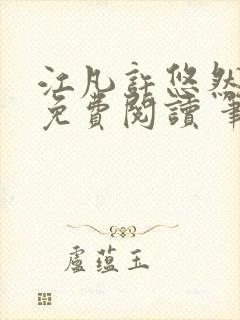 江凡許悠然
免費閱讀 筆
盧蘊玉